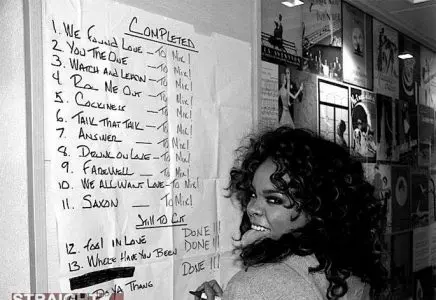 COMPLETED
1. WE FOUND LOVE - TO MIX!
2. YOU THE ONE - TO MIX!
3. WATCH AND LEARN - TO MIX!
4. ROC ME OUT - TO MIX!
5. COCKINESS - TO MIX!
6. TALK THAT TALK - TO MIX!
7. ANSWER - TO MIX!
8. DRUNK ON LOVE - TO MIX!
9. FAREWELL - TO MIX!
10. WE ALL WANT LOVE - TO MIX!
11. SAXON - TO MIX!
STILL TO CUT
12. FOOL IN LOVE DONE!!!
13. WHERE HAVE YOU BEEN DONE!!!
DONE!!!
DO YA THANG
STRAIGHT